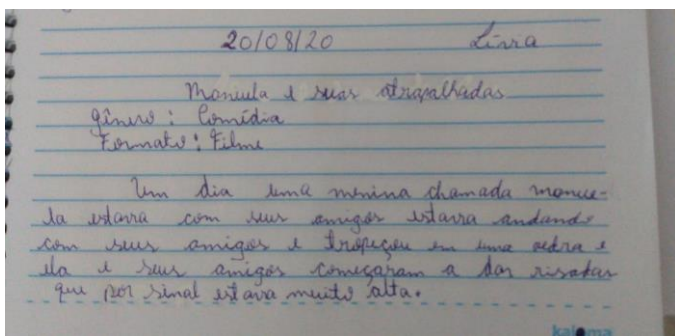 20/08/20 Lívia
Manuela e suas atrapalhadas
gênero: Comédia
Formato: Filme
Um dia uma menina chamada manue-
la estava com seus amigos estava andando
com seus amigos e tropeçou em uma pedra e
ela e seus amigos começaram a dar risadas
que por sinal estava muito alta.
kaloma